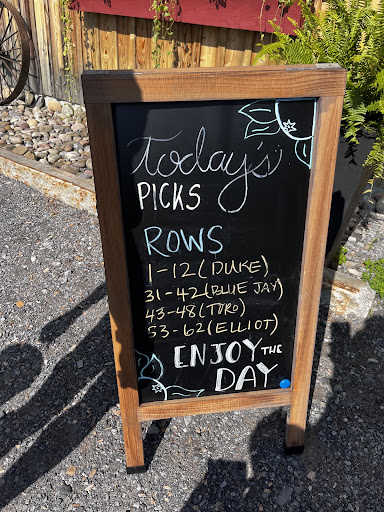 today's
PICKS
ROWS
1-12 (DUKE)
31-42 (BLUE JAY)
43-48 (TORO)
53-62 (ELLIOT)
ENJOY THE
DAY